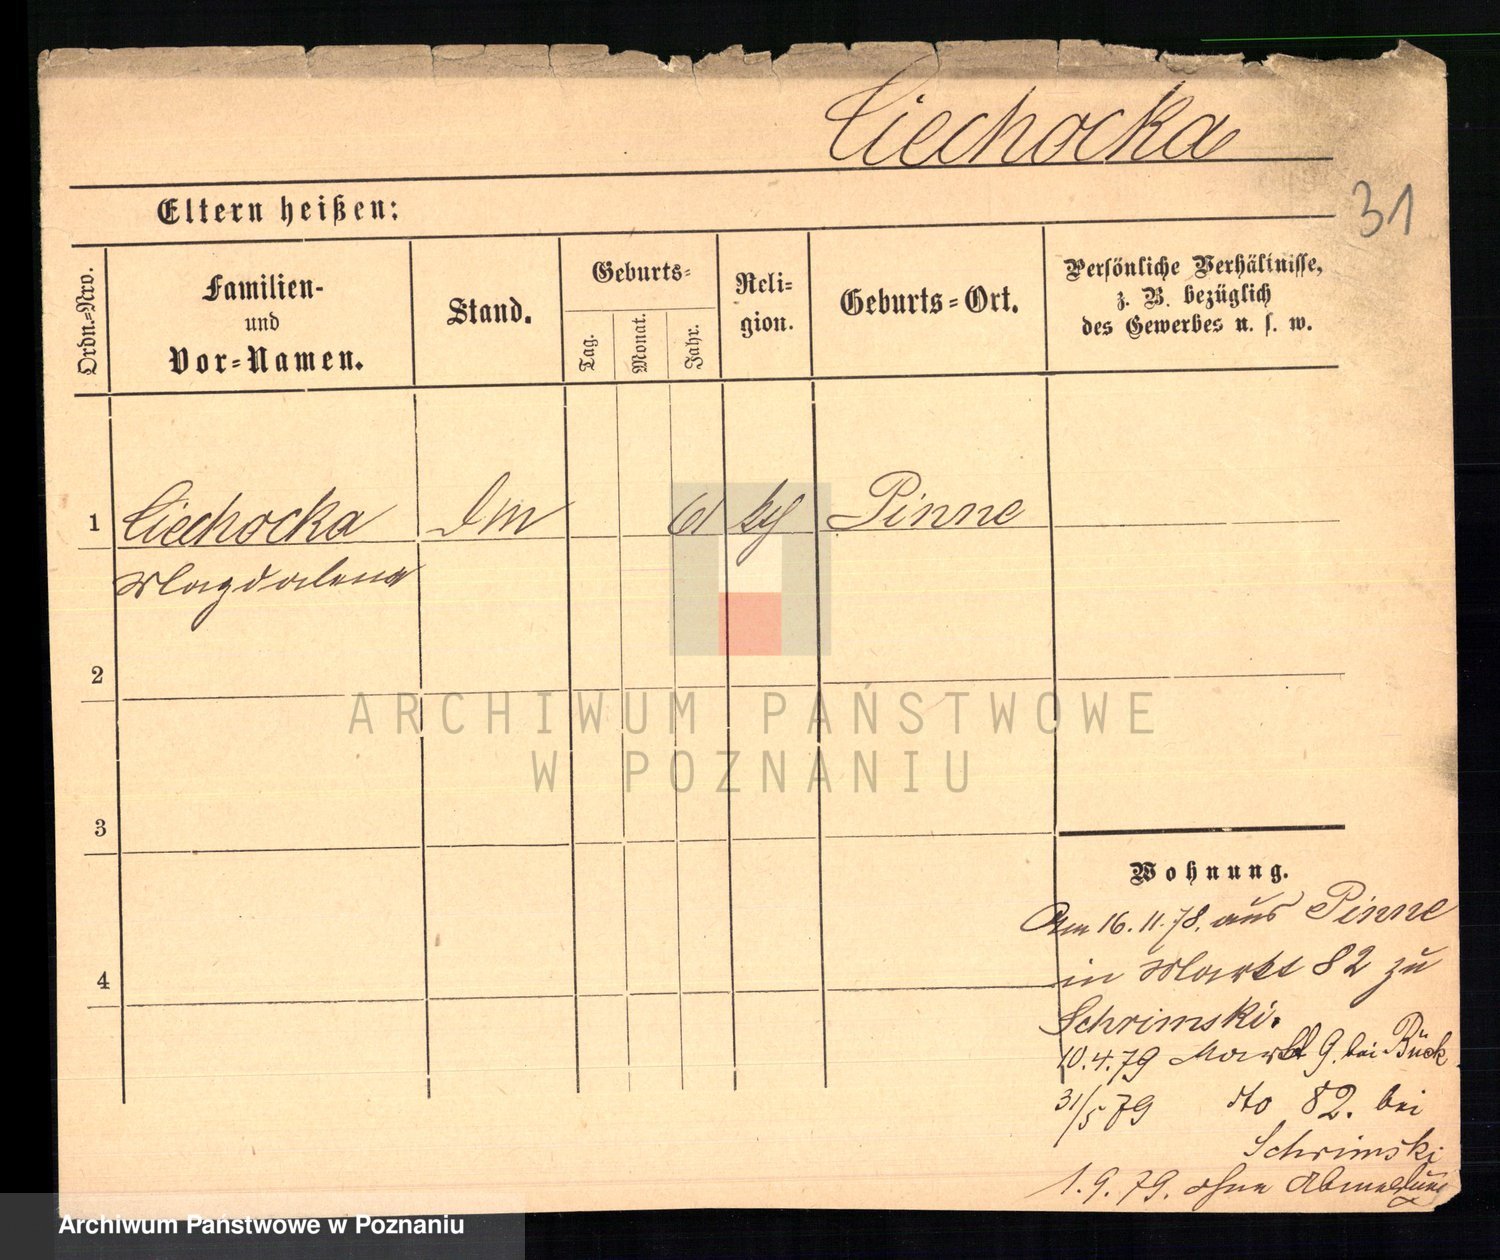 Ciechocka
31
Eltern heißen:
Ordn.-Nro.
Familien-
und
Vor-Namen.
Stand.
Geburts-
Tag.
Monat.
Jahr.
Reli-
gion.
Geburts-Ort.
Persönliche Verhältnisse,
z. B. bezüglich
des Gewerbes u. s. w.
1 Ciechocka Dm 61 kth Pinne
Magdalena
2
3
4
Wohnung.
Am 16.11.78. aus Pinne
in Markt 82 zu
Schrimski.
10.4.79 Markt 9. bei Bück
31/5 79 dto 82. bei
Schrimski
1.9.79. ohne Abmeldung
ARCHIWUM PAŃSTWOWE
W POZNANIU
Archiwum Państwowe w Poznaniu